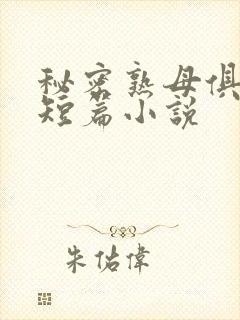 秘密熟母俱
短篇小説
朱佑偉